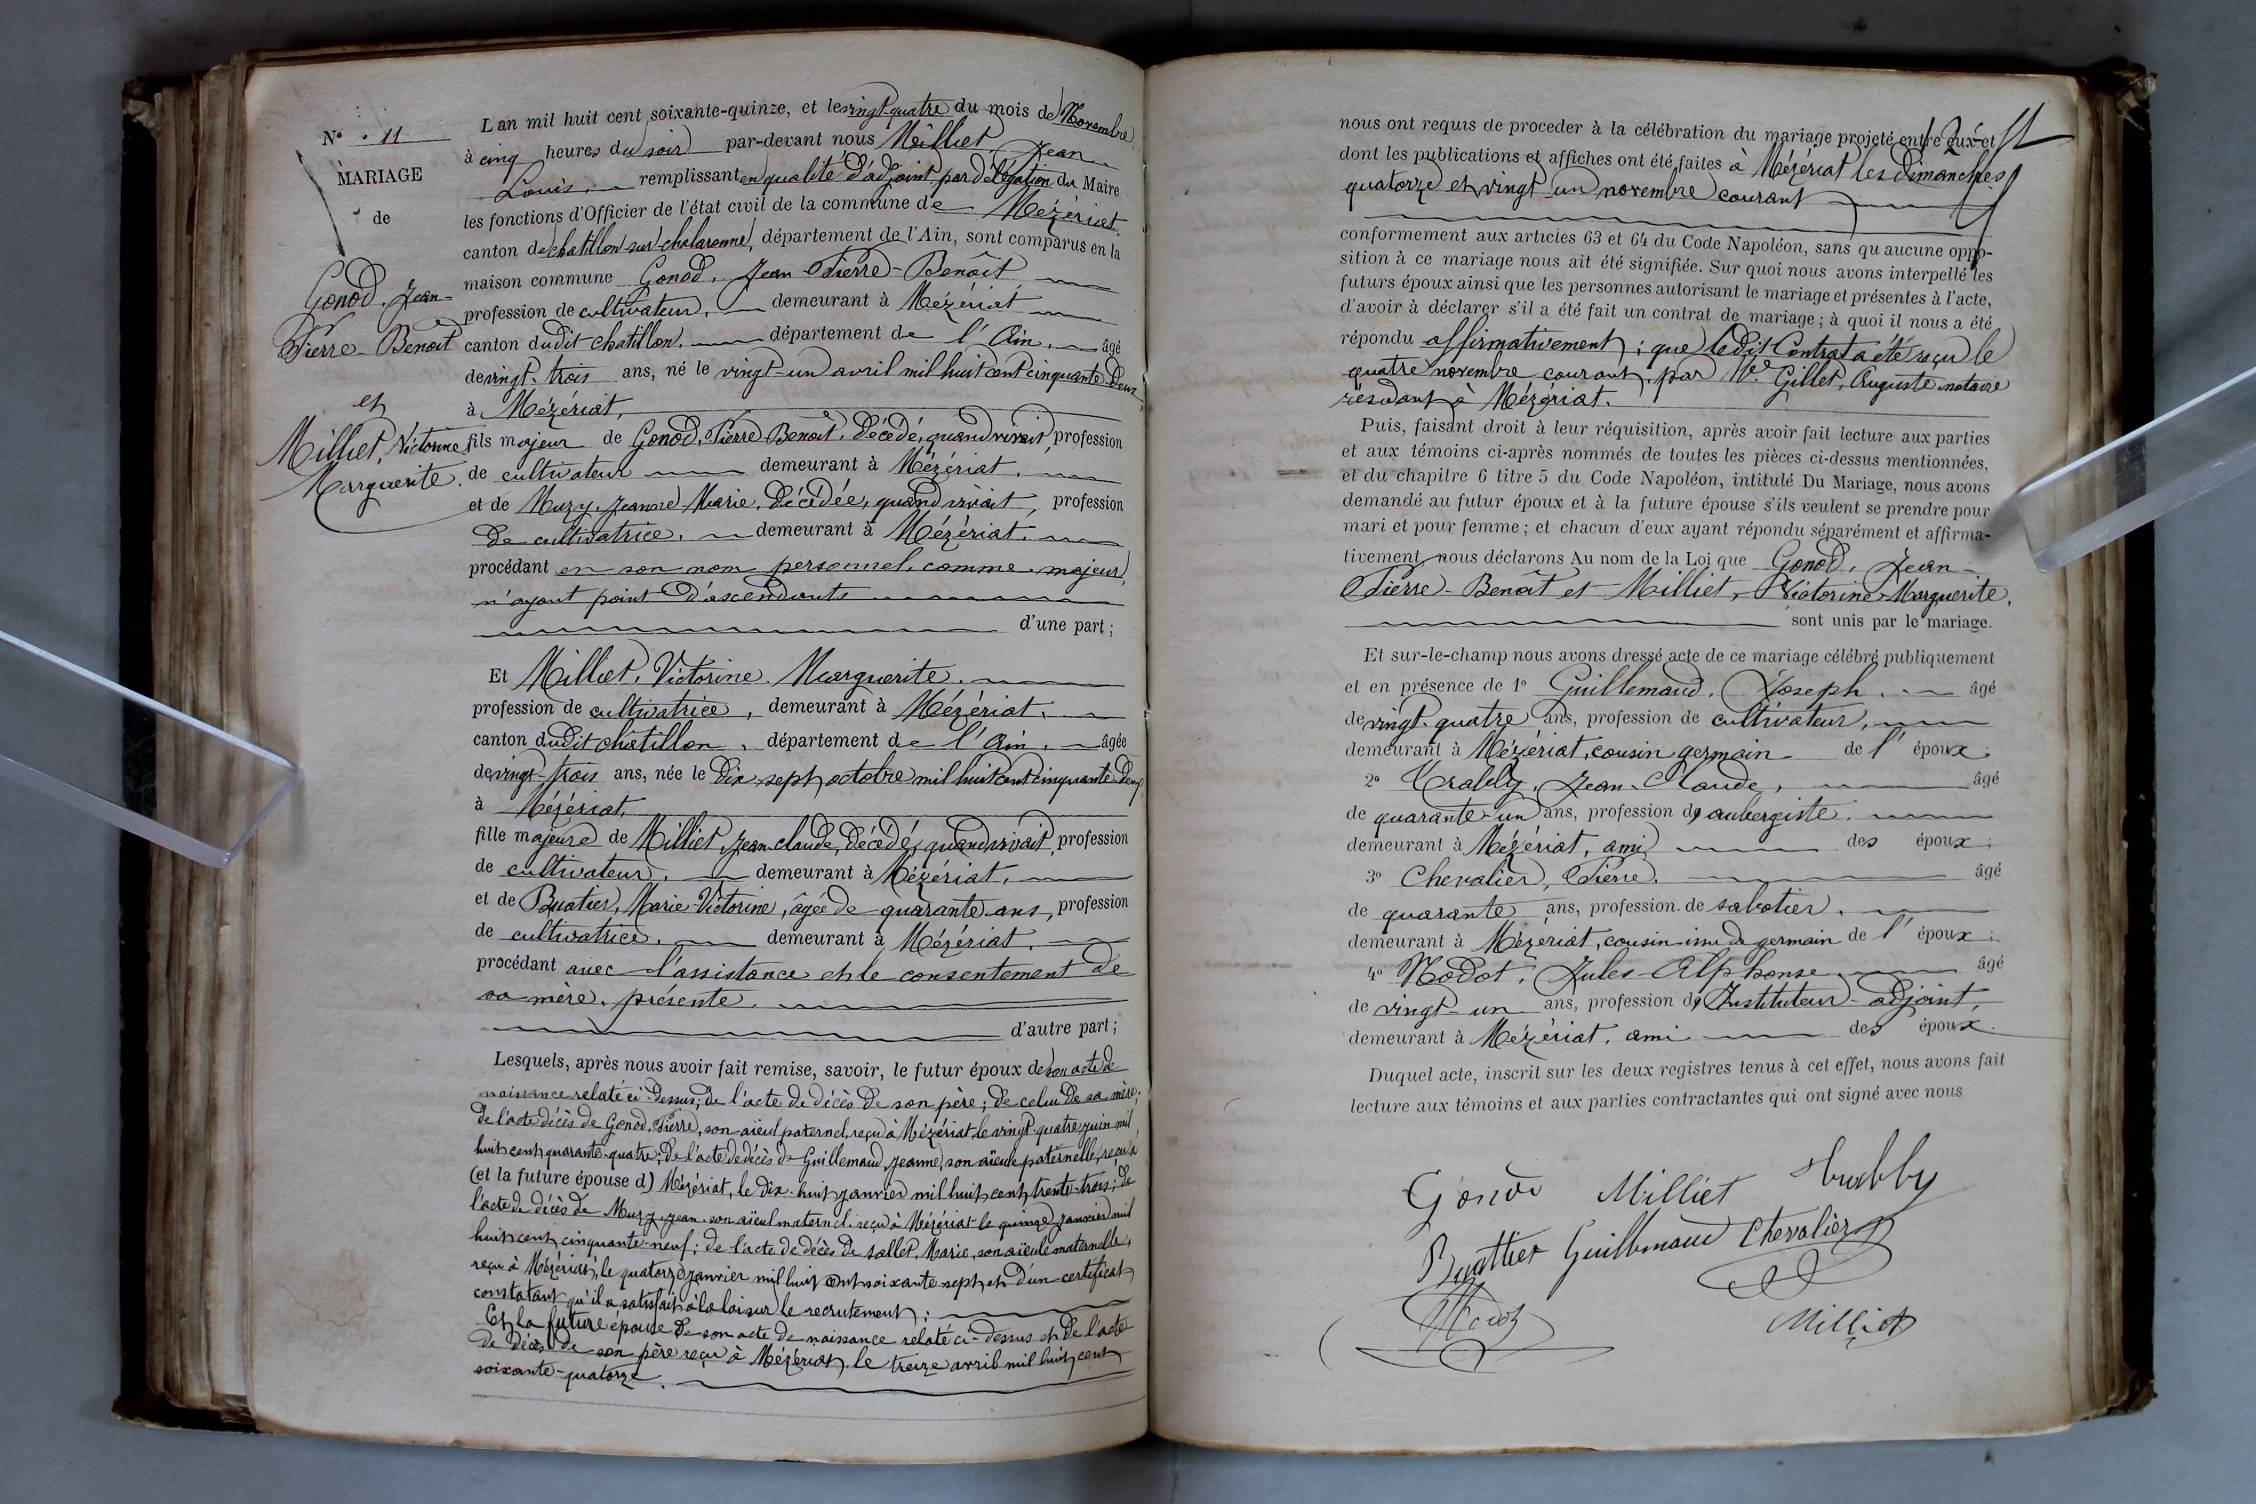 N° 11
MARIAGE
de
Gonod, Jean-
Pierre-Benoît
et
Milliet, Victorine
Marguerite.
L'an mil huit cent soixante-quinze, et le vingt-quatre du mois de Novembre
à cinq heures du soir par-devant nous Milliet, Jean
Louis, remplissant en qualité d'adjoint par délégation du Maire
les fonctions d'Officier de l'état civil de la commune de Mézériat
canton de chatillon-sur-chalaronne, département de l'Ain, sont comparus en la
maison commune Gonod, Jean-Pierre-Benoît
profession de cultivateur, demeurant à Mézériat
canton dudit chatillon, département de l'Ain, âgé
de vingt-trois ans, né le vingt-un avril mil huit cent cinquante-deux
à Mézériat,
fils majeur de Gonod, Pierre Benoît, décédé, quand vivait, profession
de cultivateur demeurant à Mézériat,
et de Muzy, Jeanne Marie, décédée, quand vivait, profession
de cultivatrice, demeurant à Mézériat,
procédant en son nom personnel, comme majeur,
n'ayant point d'ascendants
d'une part;
Et Milliet, Victorine Marguerite,
profession de cultivatrice, demeurant à Mézériat,
canton dudit châtillon, département de l'Ain, âgée
de vingt-trois ans, née le dix-sept octobre mil huit cent cinquante-deux
à Mézériat,
fille majeure de Milliet, Jean claude, décédé, quand vivait, profession
de cultivateur, demeurant à Mézériat,
et de Buatier, Marie-Victorine, âgée de quarante ans, profession
de cultivatrice, demeurant à Mézériat,
procédant avec l'assistance et le consentement de
sa mère, présente.
d'autre part;
Lesquels, après nous avoir fait remise, savoir, le futur époux de son acte de
naissance relaté ci-dessus; de l'acte de décès de son père; de celui de sa mère;
de l'acte décès de Gonod, Pierre, son aïeul paternel, reçu à Mézériat le vingt-quatre juin mil
huit cent quarante-quatre; de l'acte de décès de Guillemaud, Jeanne, son aïeule paternelle, reçu à
(et la future épouse d) Mézériat, le dix-huit janvier mil huit cent trente-trois; de
l'acte de décès de Muzy, Jean, son aïeul maternel, reçu à Mézériat le quinze janvier mil
huit cent cinquante-neuf; de l'acte de décès de Sallet, Marie, son aïeule maternelle,
reçu à Mézériat, le quatorze janvier mil huit cent soixante sept et d'un certificat
constatant qu'il a satisfait à la loi sur le recrutement;
Et la future épouse de son acte de naissance relaté ci-dessus et de l'acte
de décès de son père reçu à Mézériat, le treize avril mil huit cent
soixante-quatorze.
nous ont requis de procéder à la célébration du mariage projeté entre eux et
dont les publications et affiches ont été faites à Mézériat les dimanches
quatorze et vingt un novembre courant
conformément aux articles 63 et 64 du Code Napoléon, sans qu'aucune oppo-
sition à ce mariage nous ait été signifiée. Sur quoi nous avons interpellé les
futurs époux ainsi que les personnes autorisant le mariage et présentes à l'acte,
d'avoir à déclarer s'il a été fait un contrat de mariage; à quoi il nous a été
répondu affirmativement; que ledit Contrat a été reçu le
quatre novembre courant, par Me Gillet, Auguste notaire
résidant à Mézériat.
Puis, faisant droit à leur réquisition, après avoir fait lecture aux parties
et aux témoins ci-après nommés de toutes les pièces ci-dessus mentionnées,
et du chapitre 6 titre 5 du Code Napoléon, intitulé Du Mariage, nous avons
demandé au futur époux et à la future épouse s'ils veulent se prendre pour
mari et pour femme; et chacun d'eux ayant répondu séparément et affirma-
tivement, nous déclarons Au nom de la Loi que Gonod, Jean-
Pierre-Benoît et Milliet, Victorine-Marguerite,
sont unis par le mariage.
Et sur-le-champ nous avons dressé acte de ce mariage célébré publiquement
et en présence de 1° Guillemaud, Joseph, âgé
de vingt-quatre ans, profession de cultivateur,
demeurant à Mézériat, cousin germain de l'époux;
2° Trabby, Jean-Claude, âgé
de quarante-un ans, profession d'aubergiste,
demeurant à Mézériat, ami des époux;
3° Chevalier, Pierre, âgé
de quarante ans, profession de sabotier,
demeurant à Mézériat, cousin issu de germain de l'époux;
4° Modot, Jules-Alphonse, âgé
de vingt-un ans, profession d'Instituteur-adjoint,
demeurant à Mézériat, ami des époux.
Duquel acte, inscrit sur les deux registres tenus à cet effet, nous avons fait
lecture aux témoins et aux parties contractantes qui ont signé avec nous
Gonod Milliet Trabby
Buattier Guillemaud Chevalier
Modot
Milliet